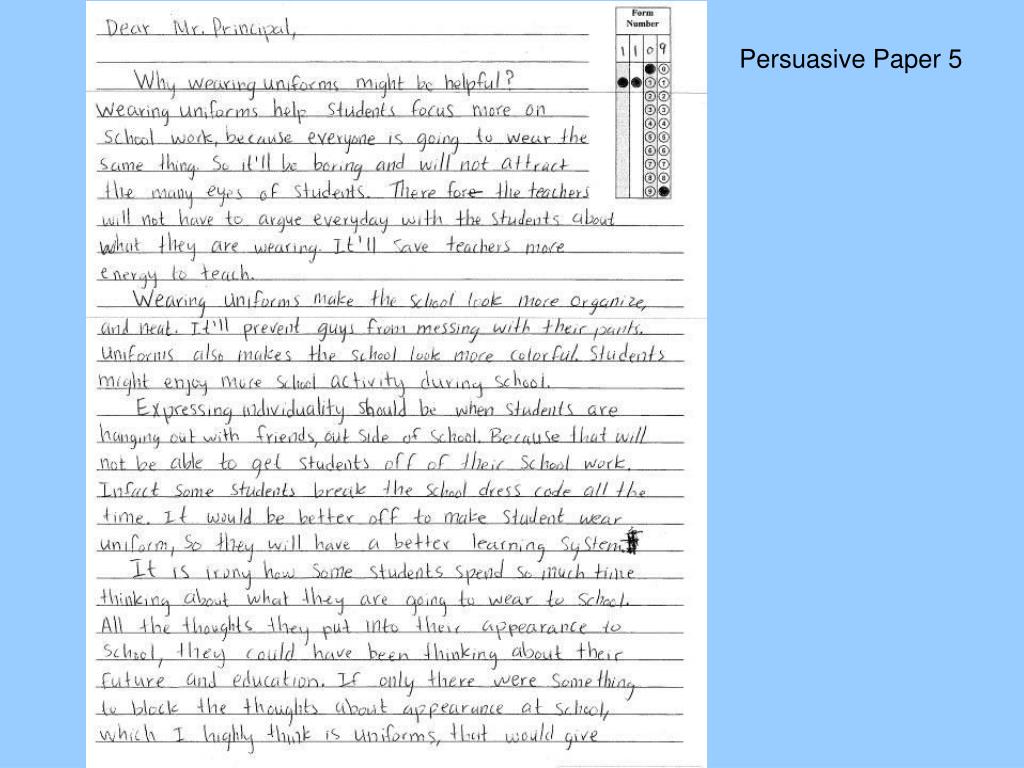 Dear Mr. Principal,
Form
Number
1 1 0 9
Persuasive Paper 5
Why wearing uniforms might be helpful?
Wearing uniforms help students focus more on
school work, because everyone is going to wear the
same thing. So it'll be boring and will not attract
the many eyes of students. There fore the teachers
will not have to argue everyday with the students about
what they are wearing. It'll save teachers more
energy to teach.
Wearing uniforms make the school look more organize,
and neat. It'll prevent guys from messing with their pants.
Uniforms also makes the school look more colorful. Students
might enjoy more school activity during school.
Expressing individuality should be when students are
hanging out with friends, out side of school. Because that will
not be able to get students off of their school work.
Infact some students break the school dress code all the
time. It would be better off to make student wear
uniform, so they will have a better learning system
It is irony how some students spend so much time
thinking about what they are going to wear to school.
All the thoughts they put into their appearance to
school, they could have been thinking about their
future and education. If only there were something
to block the thoughts about appearance at school,
which I highly think is uniforms, that would give